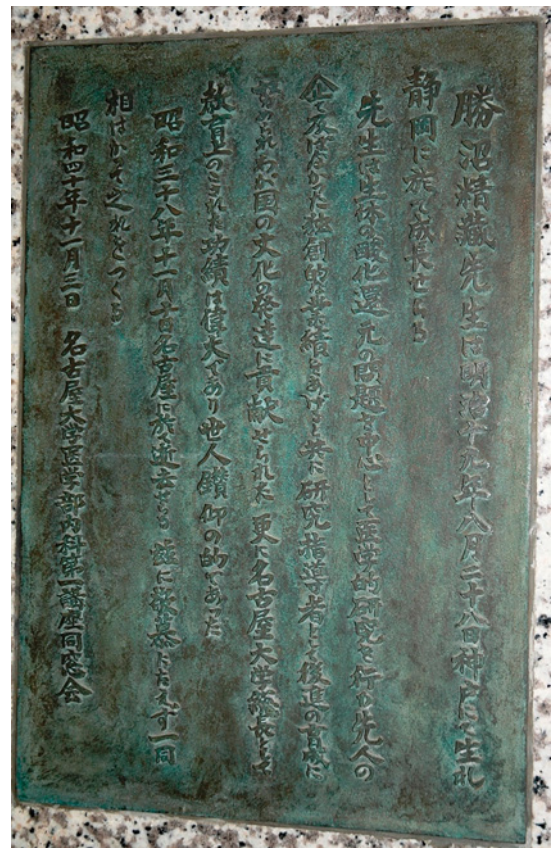 勝沼精藏先生は明治十九年八月二十八日神戸にて生れ
静岡に於て成長せらる
先生は生体の酸化還元の問題を中心として医学的研究を行い先人の
企て及ばなかった独創的な業績をあげると共に研究指導者として後進の育成に
努められわが国の文化の発達に貢献せられた 更に名古屋大学総長として
教育上のこされた功績は偉大であり世人鑽仰の的であった
昭和三十八年十一月十日名古屋に於て逝去せらる 茲に欽慕にたえず一同
相はかりて之れをつくる
昭和四十年十一月三日 名古屋大学医学部内科第一講座同窓会